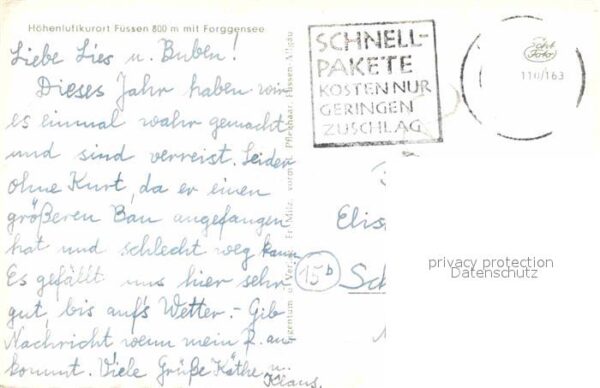 Höhenluftkurort Füssen 800 m mit Forggensee
Liebe Lies u. Buben!
Dieses Jahr haben wir
es einmal wahr gemacht
und sind verreist. Leider
ohne Kurt, da er einen
größeren Bau angefangen
hat und schlecht weg kann
Es gefällt uns hier sehr
gut, bis auf's Wetter.- Gib
Nachricht wenn mein P. an-
kommt. Viele Grüße Käthe u.
Klaus.
Fr. Milz, vorm. Füssen Allgäu
SCHNELL-
PAKETE
KOSTEN NUR
GERINGEN
ZUSCHLAG
Echt
Foto
110/163
Elis
15b
Sch
privacy protection
Datenschutz